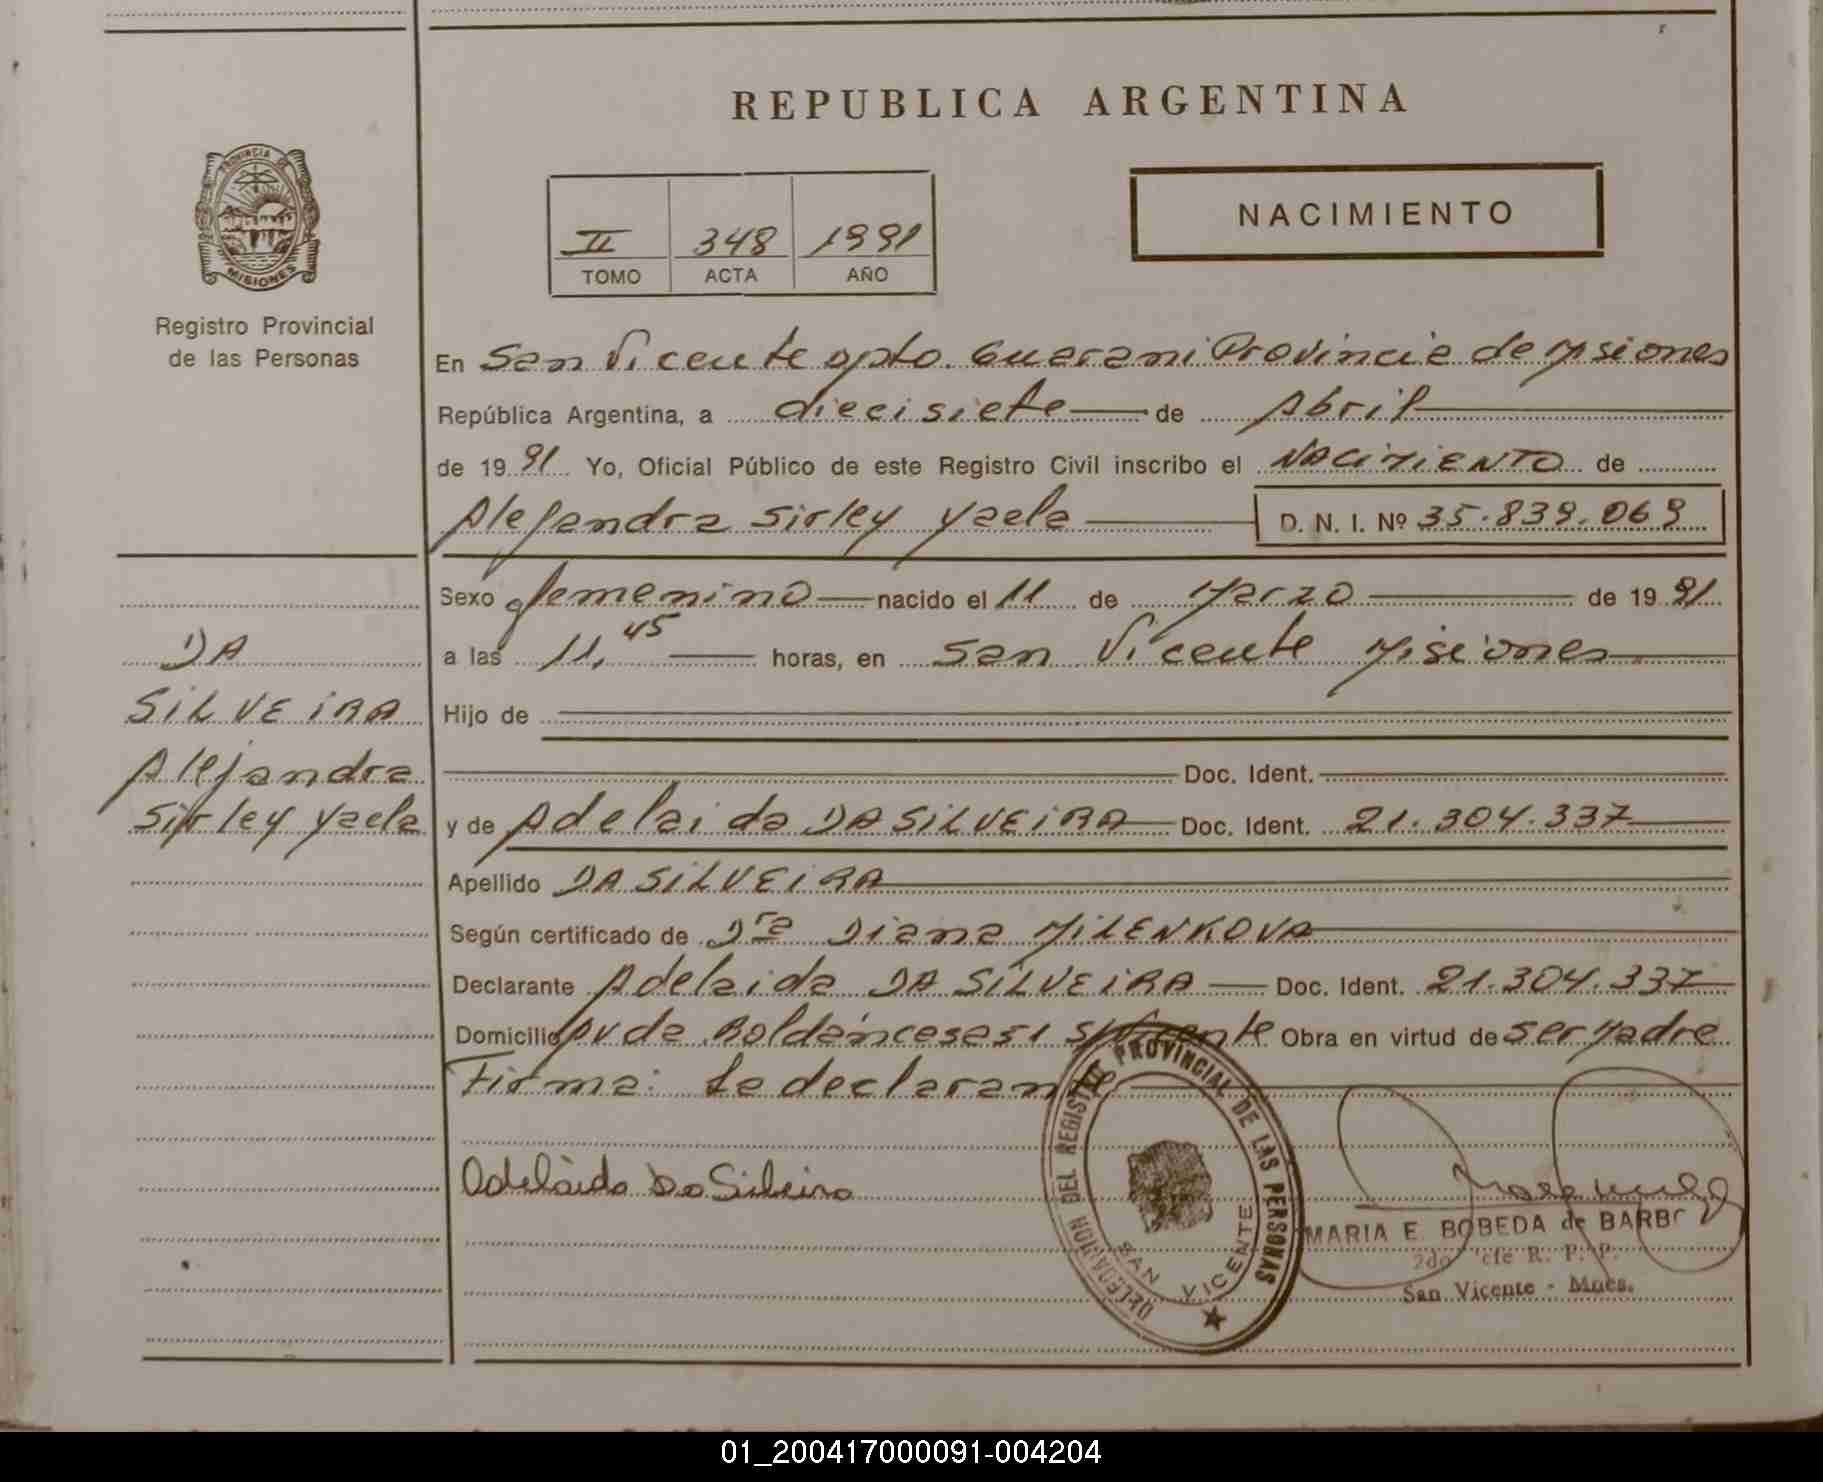 REPUBLICA ARGENTINA
PROVINCIA DE
MISIONES
Registro Provincial
de las Personas
II 348 1991
TOMO ACTA AÑO
NACIMIENTO
En San Vicente Dpto. Guarani Provincia de Misiones
República Argentina, a diecisiete de Abril
de 1991 Yo, Oficial Público de este Registro Civil inscribo el NACIMIENTO de
Alejandra Sirley Yaela D. N. I. Nº 35.839.069
Sexo femenino nacido el 11 de Marzo de 1991
a las 11,45 horas, en San Vicente Misiones
Hijo de
Doc. Ident.
y de Adelaida DA SILVEIRA Doc. Ident. 21.304.337
Apellido DA SILVEIRA
Según certificado de Dra Diana MILENKOVA
Declarante Adelaida DA SILVEIRA Doc. Ident. 21.304.337
Domicilio Obra en virtud de ser Madre
Firma: La declarante
DA
SILVEIRA
Alejandra
Sirley Yaela
Adelaida Da Silveira
DELEGACION DEL REGISTRO PROVINCIAL DE LAS PERSONAS
SAN VICENTE
MARIA E. BOBEDA de BARBO
2do R. P. P.
San Vicente - Mnes.
01_200417000091-004204